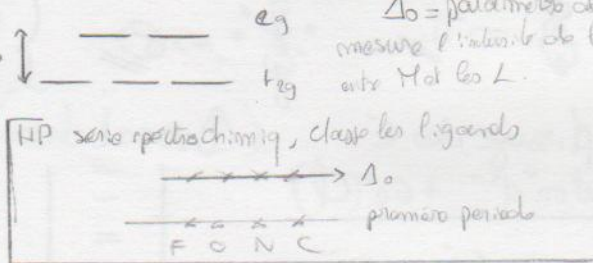 eg
Δo = paramètre de
mesure l'intensité de l'
t2g
entre M et les L.
NP série spectrochimiq, classe les ligands
Δo
première période
F O N C